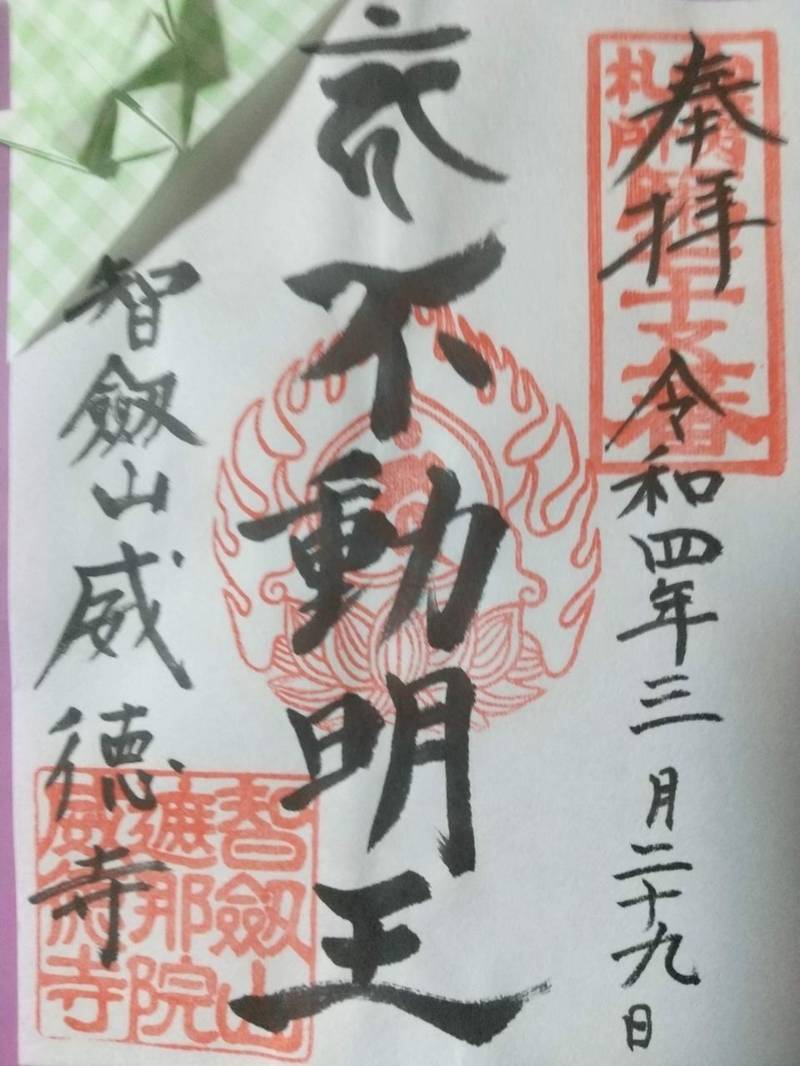 奉拝
令和四年三月二十九日
札所
不動明王
智劔山威徳寺
智劔山
遮那院
威徳寺